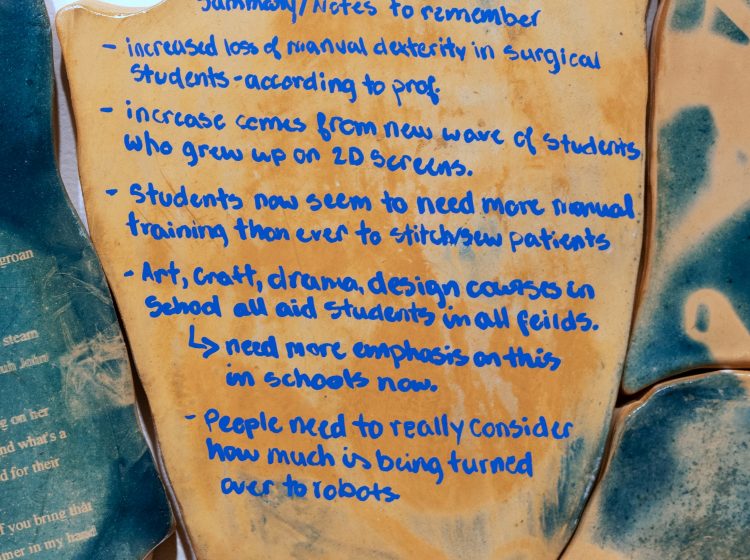 Summary/Notes to remember
- increased loss of manual dexterity in surgical
students - according to prof.
- increase comes from new wave of students
who grew up on 2D screens.
- Students now seem to need more manual
training than ever to stitch/sew patients
- Art, craft, drama, design courses in
school all aid students in all feilds.
↳ need more emphasis on this
in schools now.
- People need to really consider
how much is being turned
over to robots.
groan
steam
John!
on her
and what's a
d for their
f you bring that
in my hand